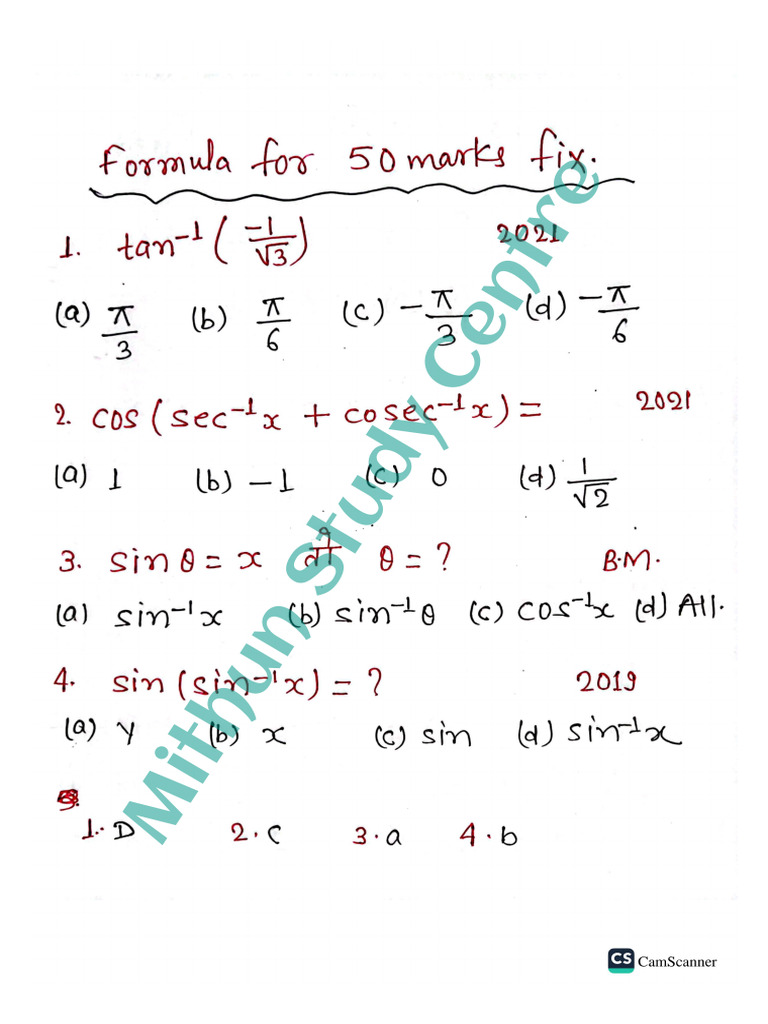 Formula for 50 marks fix.
1. tan⁻¹(-1/√3) 2021
(a) π/3 (b) π/6 (c) -π/3 (d) -π/6
2. cos(sec⁻¹x + cosec⁻¹x) = 2021
(a) 1 (b) -1 (c) 0 (d) 1/√2
3. sin θ = x तो θ = ? B.M.
(a) sin⁻¹x (b) sin⁻¹θ (c) cos⁻¹x (d) All.
4. sin(sin⁻¹x) = ? 2019
(a) y (b) x (c) sin (d) sin⁻¹x
1. D 2. c 3. a 4. b
Mithun Study Centre
CS CamScanner